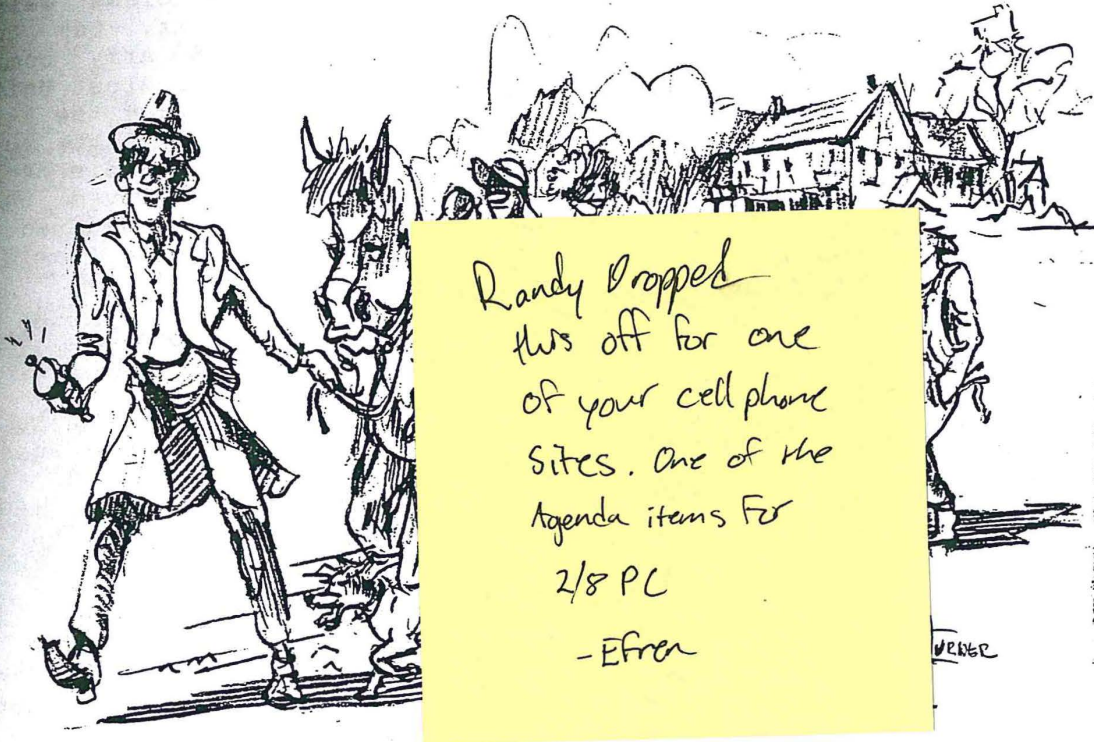 Randy Dropped
this off for one
of your cell phone
sites. One of the
Agenda items For
2/8 PC
-Efren
URNER